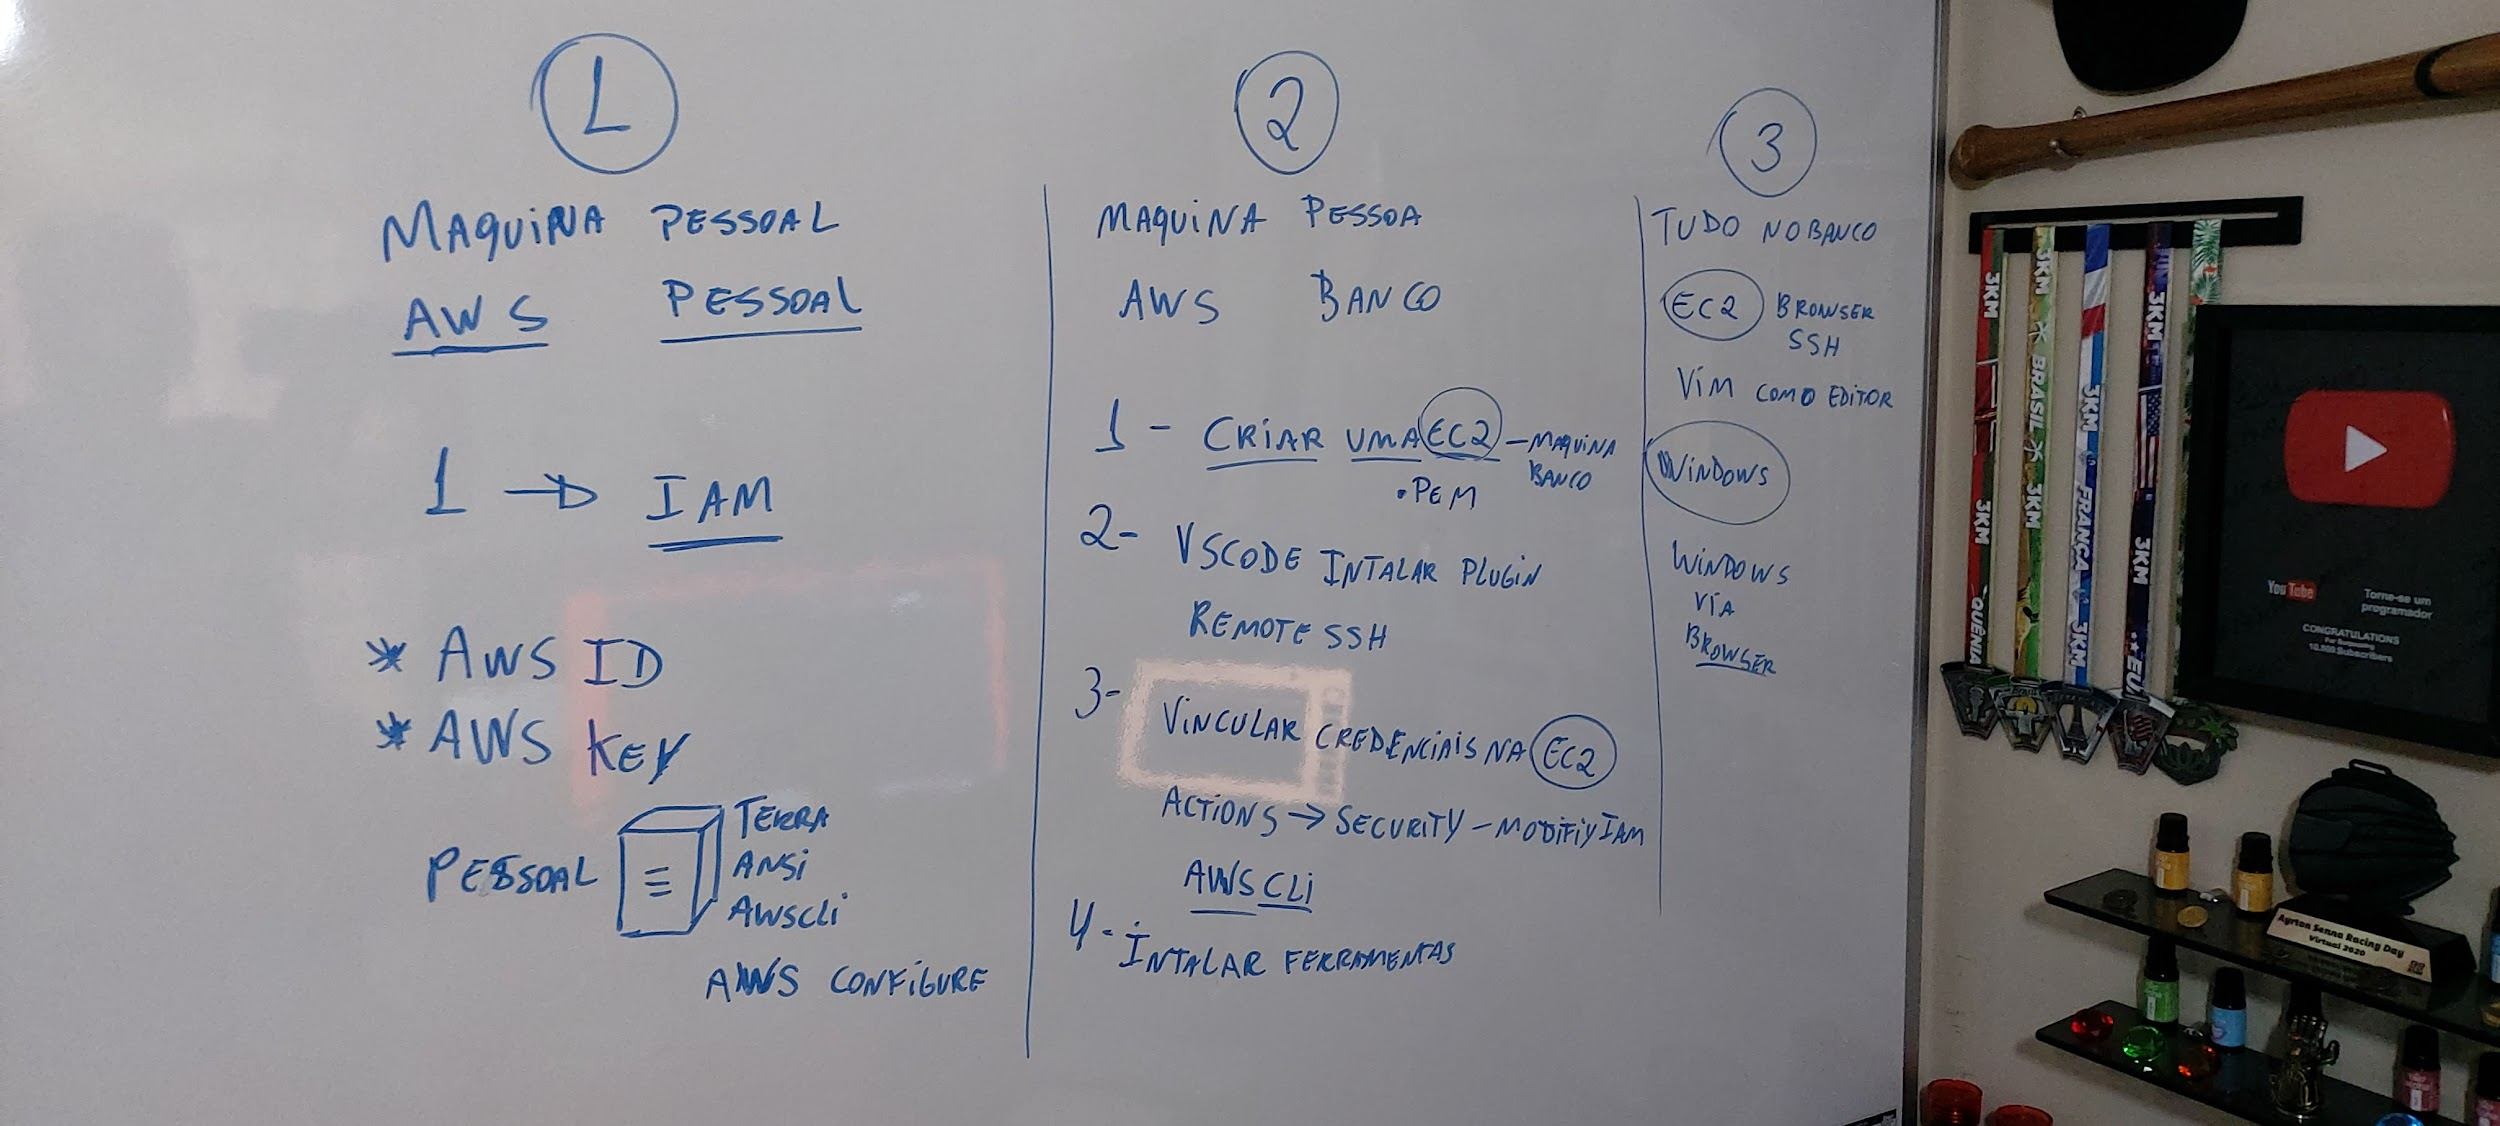 1
MAQUINA PESSOAL
AWS PESSOAL
1 → IAM
* AWS ID
* AWS KEY
PESSOAL
TERRA
ANSI
AWSCLI
AWS CONFIGURE
2
MAQUINA PESSOA
AWS BANCO
1 - CRIAR UMA EC2 - MAQUINA
BANCO
.PEM
2- VSCODE INTALAR PLUGIN
REMOTE SSH
3- VINCULAR CREDENCIAIS NA EC2
ACTIONS → SECURITY - MODIFIY IAM
AWS CLI
4- INTALAR FERRAMENTAS
3
TUDO NO BANCO
EC2 BROWSER
SSH
VIM COMO EDITOR
WINDOWS
WINDOWS
VIA
BROWSER
3KM
3KM
3KM
QUÊNIA
3KM
BRASIL
3KM
3KM
FRANÇA
3KM
3KM
3KM
EUA
YouTube
Torne-se um
programador
CONGRATULATIONS
For Surpassing
10,000 Subscribers
Ayrton Senna Racing Day
Virtual 2020